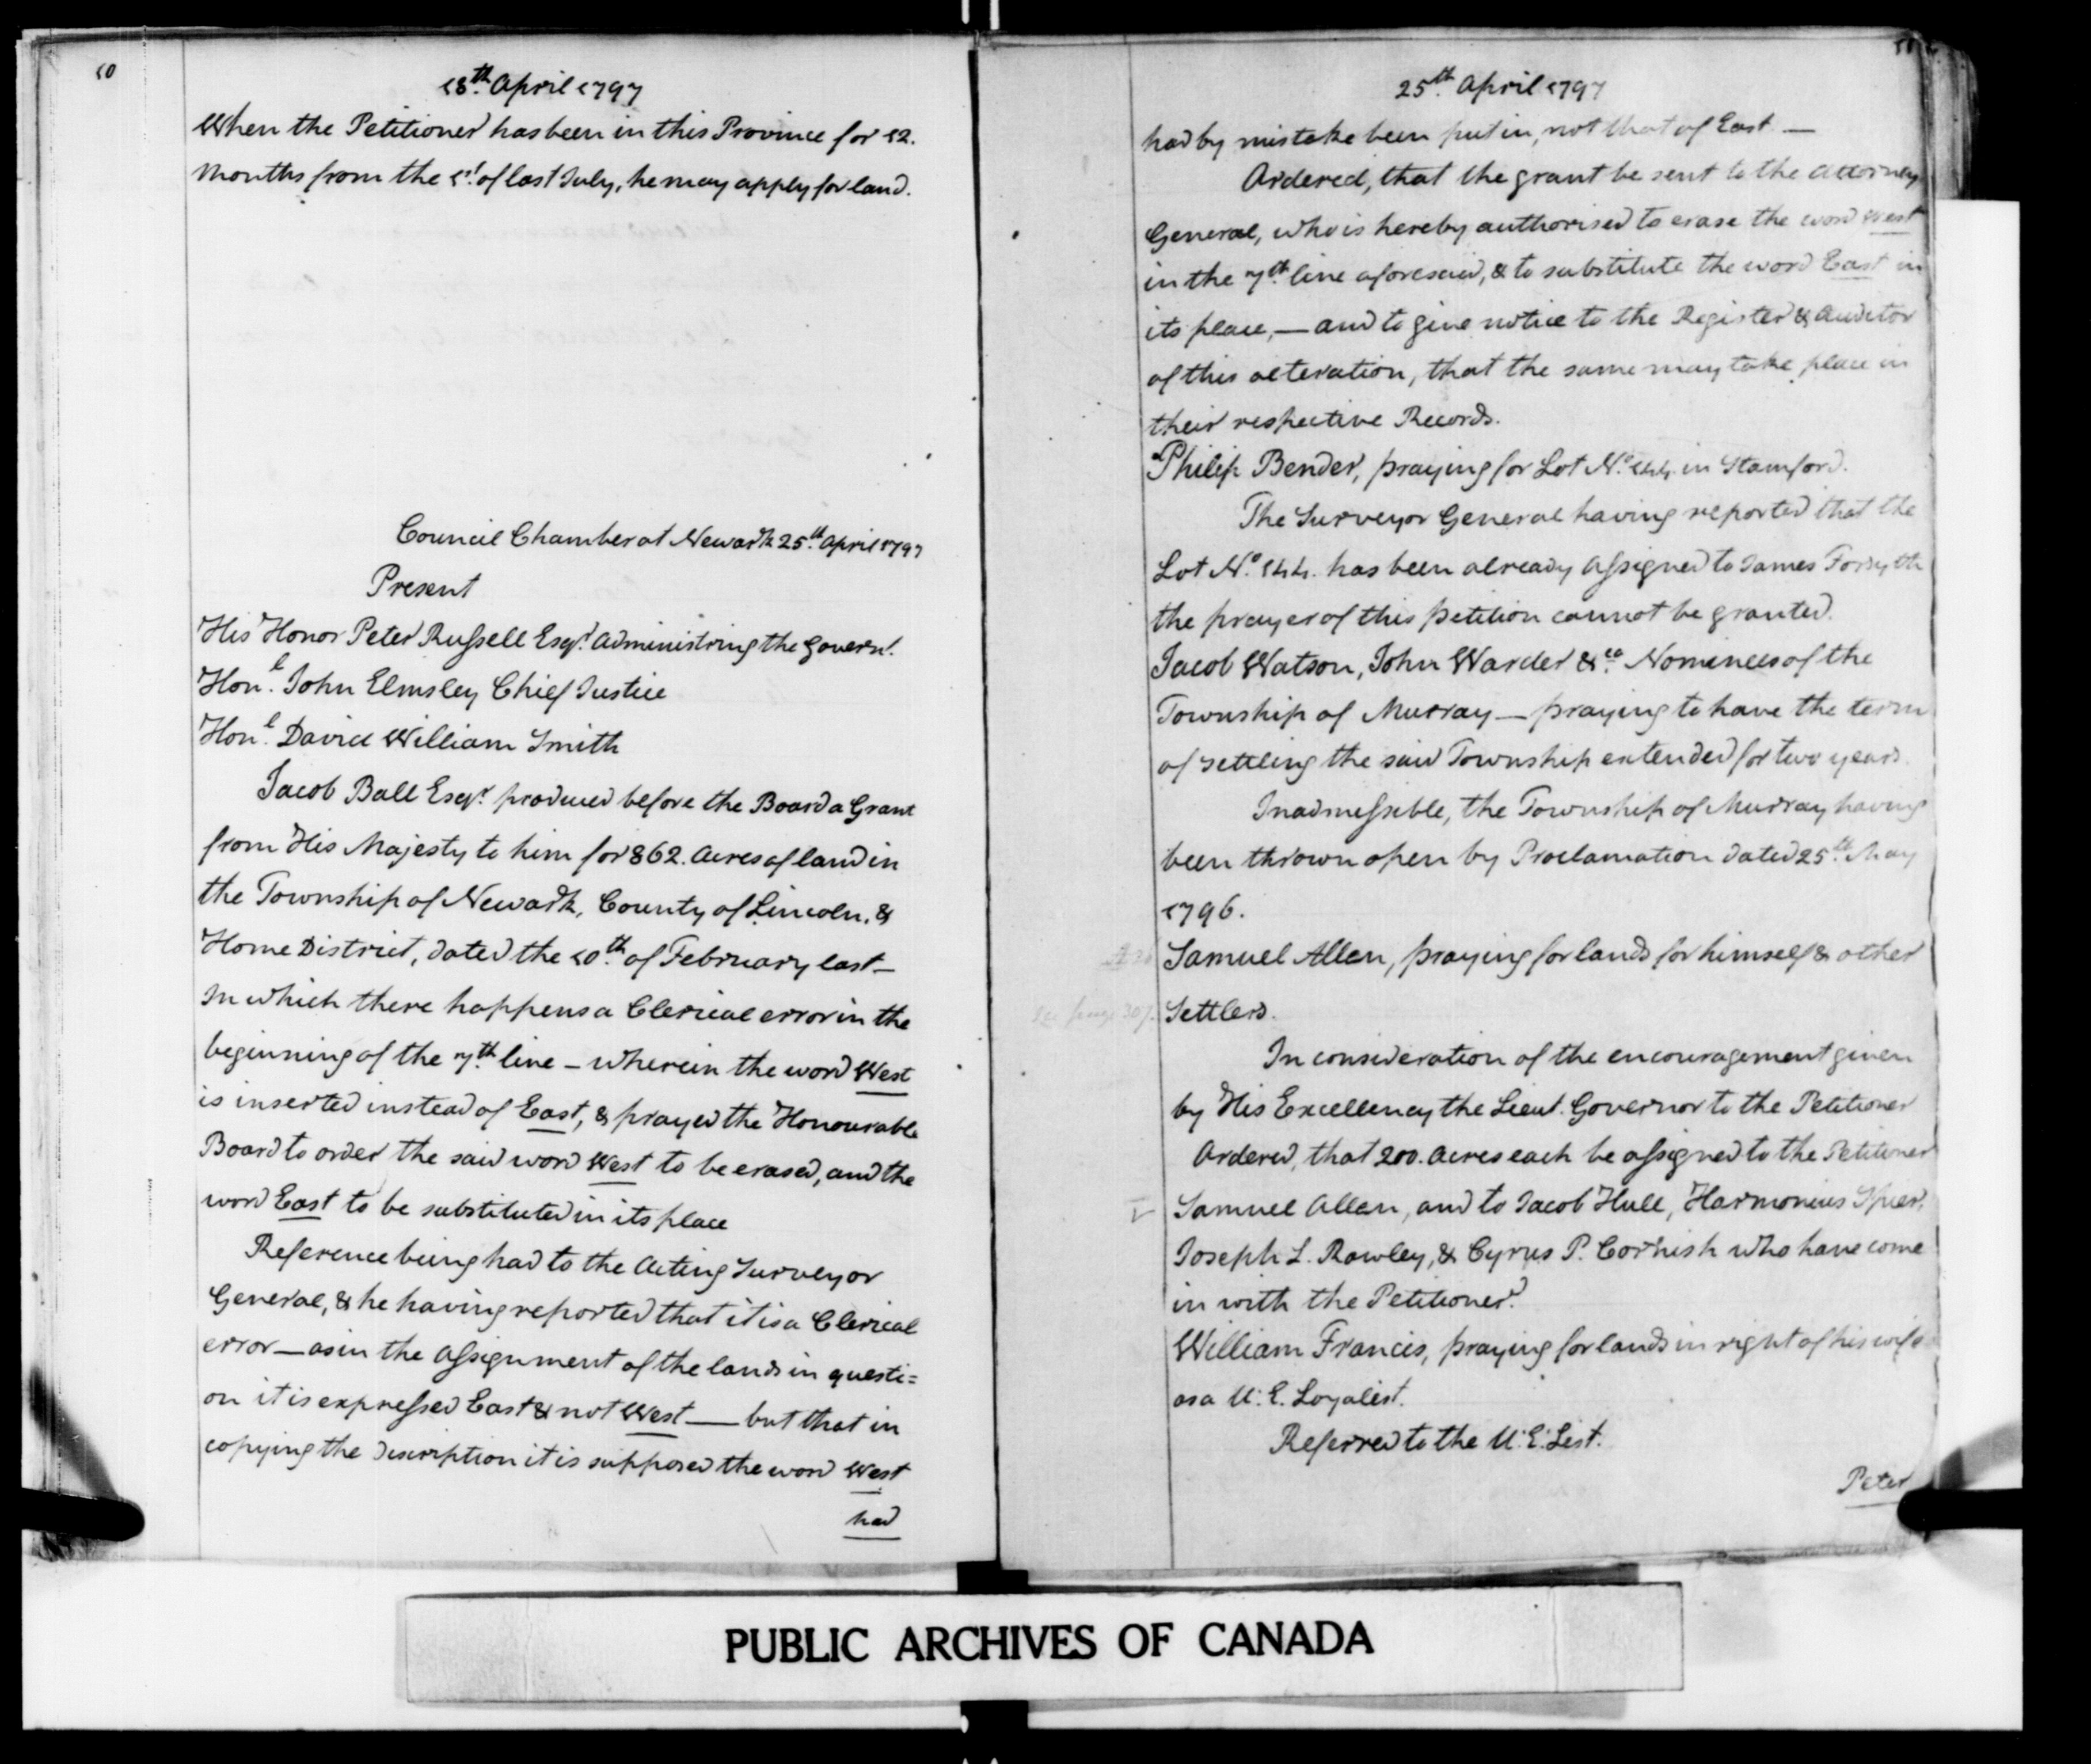 10
18th. April 1797
When the Petitioner has been in this Province for 12.
Months from the 1st. of last July, he may apply for land.
Council Chamber at Newark 25.th April 1797
Present
His Honor Peter Russell Esqr. Administring the Governt.
Honl. John Elmsley Chief Justice
Honl. David William Smith
Jacob Ball Esqr. produced before the Board a Grant
from His Majesty to him for 862. Acres of land in
the Township of Newark, County of Lincoln, &
Home District, dated the 10th. of February last—
In which there happens a Clerical error in the
beginning of the 7th. line – wherein the word West
is inserted instead of East, & prayed the Honourable
Board to order the said word West to be erased, and the
word East to be substituted in its place
Reference being had to the Acting Surveyor
General, & he having reported that it is a Clerical
error—as in the Assignment of the lands in questi=
on it is expressed East & not West — but that in
copying the Description it is supposed the word West
had
25th. April 1797
had by mistake been put in, not that of East. —
Ordered, that the grant be sent to the Attorney
General, who is hereby authorised to erase the word West
in the 7th. line aforesaid, & to substitute the word East in
its place, — and to give notice to the Register & Auditor
of this alteration, that the same may take place in
their respective Records.
Philip Bender, praying for Lot No. 144. in Stamford.
The Surveyor General having reported that the
Lot No. 144. has been already Assigned to James Forsyth
the prayer of this petition cannot be granted.
Jacob Watson, John Warder &ca. Nominees of the
Township of Murray — praying to have the term
of settling the said Township extended for two years.
Inadmissible, the Township of Murray having
been thrown open by Proclamation dated 25.th May
1796.
Samuel Allen, praying for lands for himself & other
See page 307.
Settlers.
In consideration of the encouragement given
by His Excellency the Lieut. Governor to the Petitioner
Ordered, that 200. Acres each be assigned to the Petitioner
Samuel Allen, and to Jacob Hull, Harmonius Spier,
Joseph L. Rowley, & Cyrus P. Cornish who have come
in with the Petitioner.
William Francis, praying for lands in right of his wife
as a U. E. Loyalist.
Referred to the U. E. List.
Peter
PUBLIC ARCHIVES OF CANADA